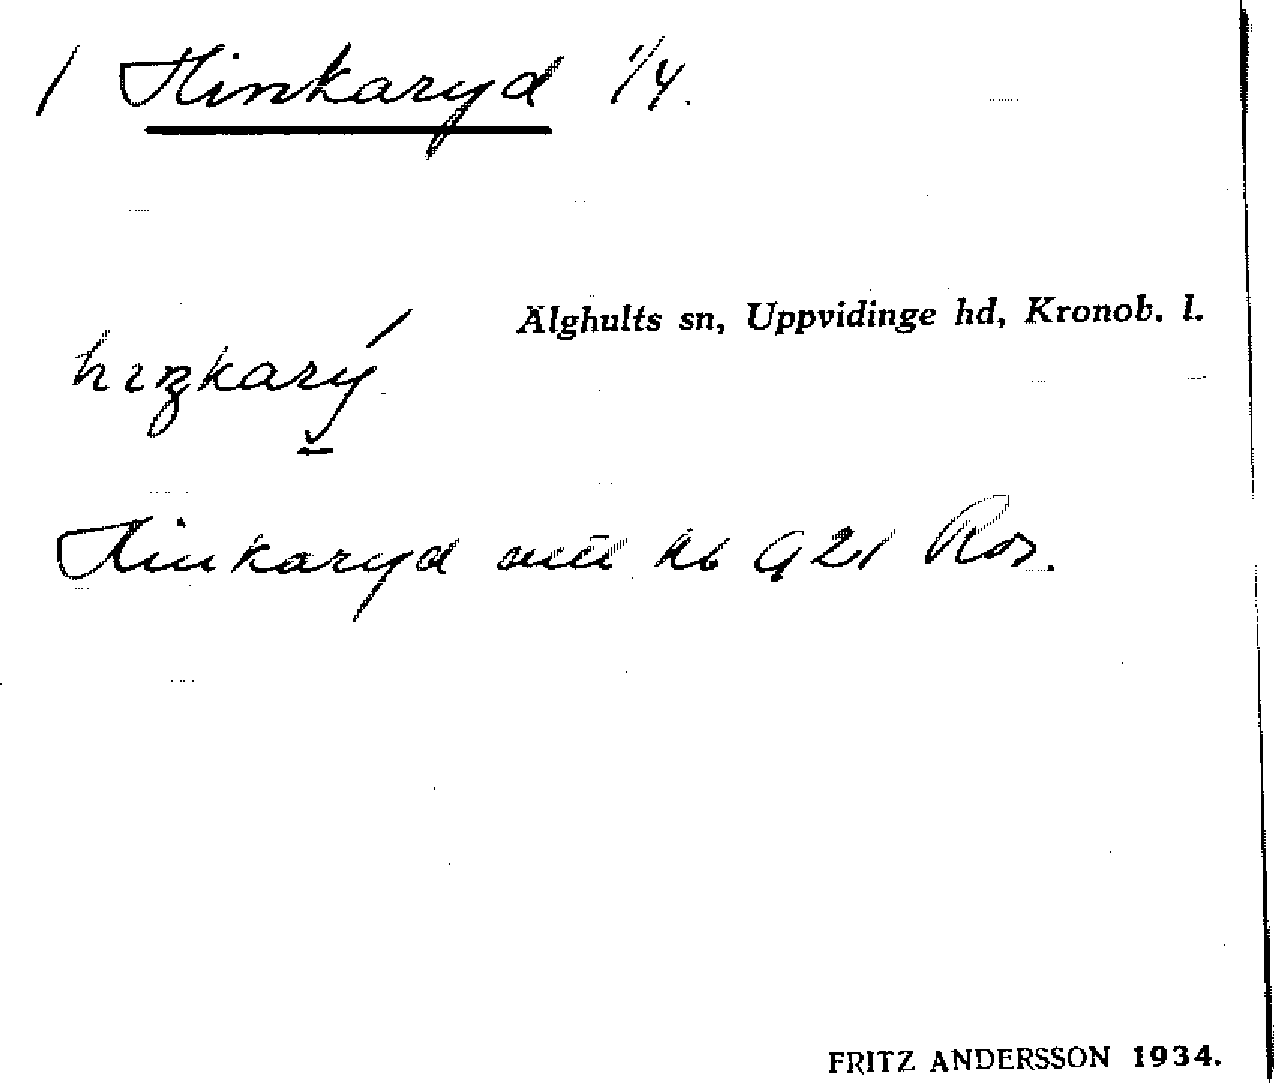 1 Hinkaryd 1/4.
Älghults sn, Uppvidinge hd, Kronob. l.
hıŋkarý
Hinkaryd
FRITZ ANDERSSON 1934.